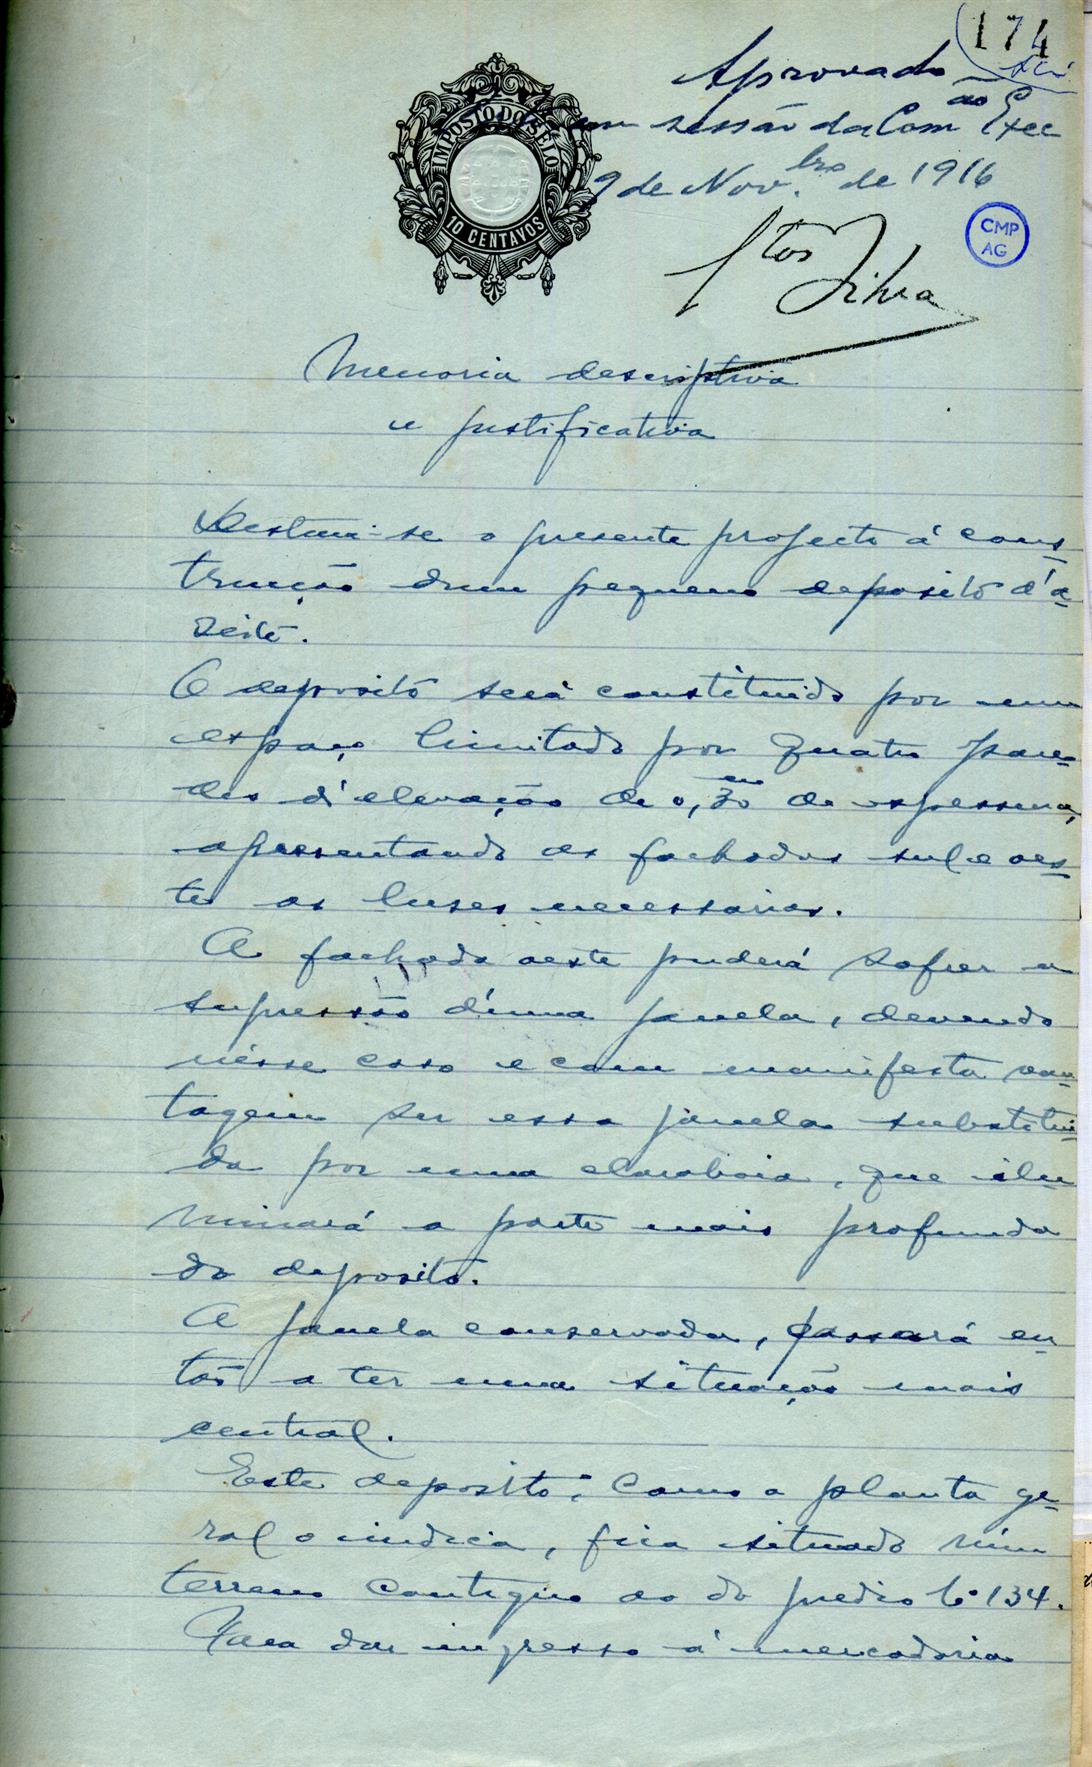 174
Aprovado
em sessão da Com.ão Exec
9 de Nov.bro de 1916
Stos Silva
IMPOSTO DO SELO
10 CENTAVOS
CMP
AG
Memoria descriptiva
e justificativa
Destina-se o presente projecto á cons-
trucção dum pequeno deposito d'a-
zeite.
O deposito será constituido por um
espaço limitado por quatro pare-
des d'elevação de 0,30 de espessura,
apresentando as fachadas sul e oes-
te as luses necessarias.
A fachada oeste puderá sofrer a
supressão d'uma janela, devendo
nésse caso e com manifesta van-
tagem ser essa janela substitui-
da por uma claraboia, que ilu-
minará a parte mais profunda
do deposito.
A janela conservada, passará en-
tão a ter uma situação mais
central.
Este deposito, como a planta ge-
ral o indica, fica situado num
terreno contiguo ao do predio 134.
Para dar ingresso á mercadoria